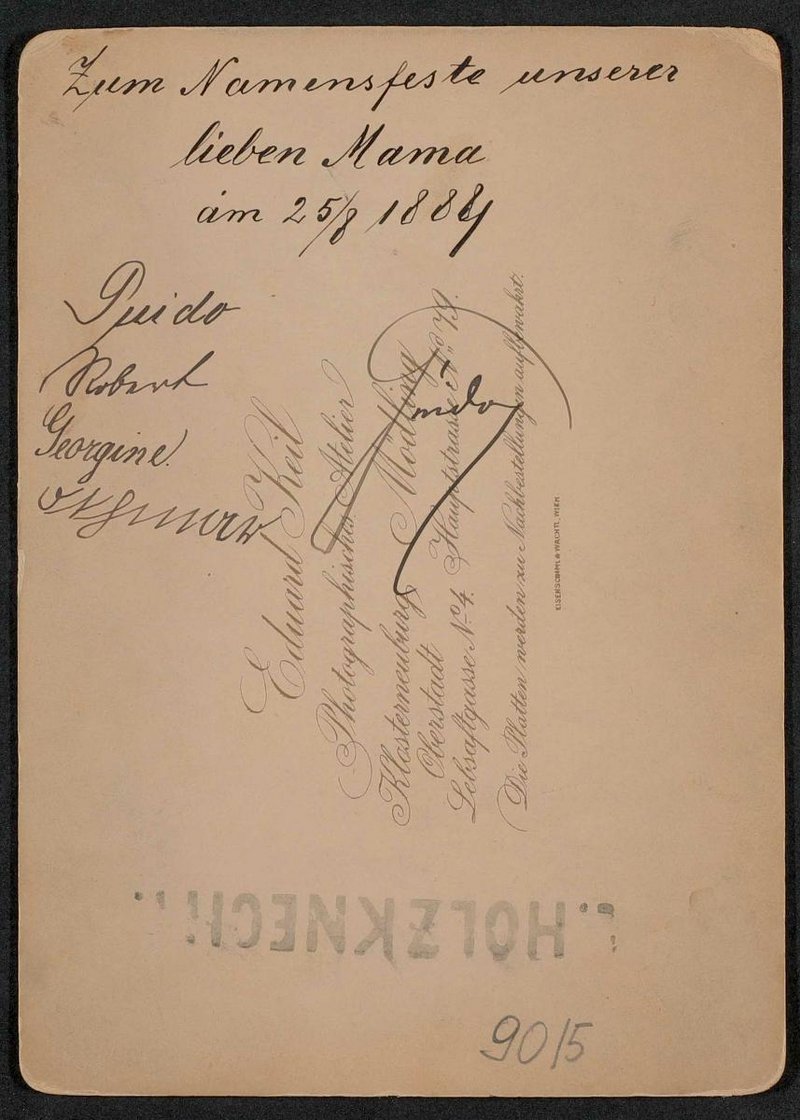 Zum Namensfeste unserer
lieben Mama
am 25/8 1884
Guido
Robert
Georgine.
Othmar
Eduard Keil
Photographisches Atelier
Klosterneuburg Mödling
Oberstadt Hauptstrasse No. 79.
No. 4.
Die Platten werden zu Nachbestellungen aufbewahrt.
EISENSCHIML & WACHTL, WIEN
HOLZKNECH
90/5